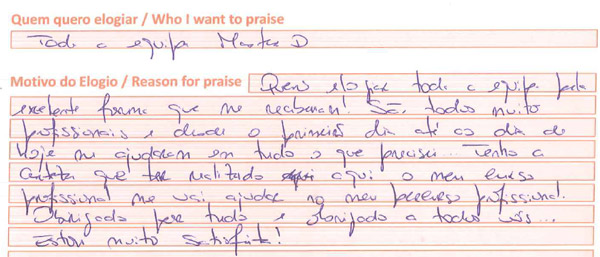 Quem quero elogiar / Who I want to praise
Toda a equipa Master D
Motivo do Elogio / Reason for praise Quero elogiar toda a equipa pela
excelente forma que me receberam! São todos muito
profissionais e desde o primeiro dia até ao dia de
Hoje me ajudaram em tudo o que precisei... Tenho a
certeza que ter realizado aqui o meu curso
profissional me vai ajudar no meu percurso profissional.
Obrigado por tudo e obrigado a todos vós...
Estou muito satisfeita!